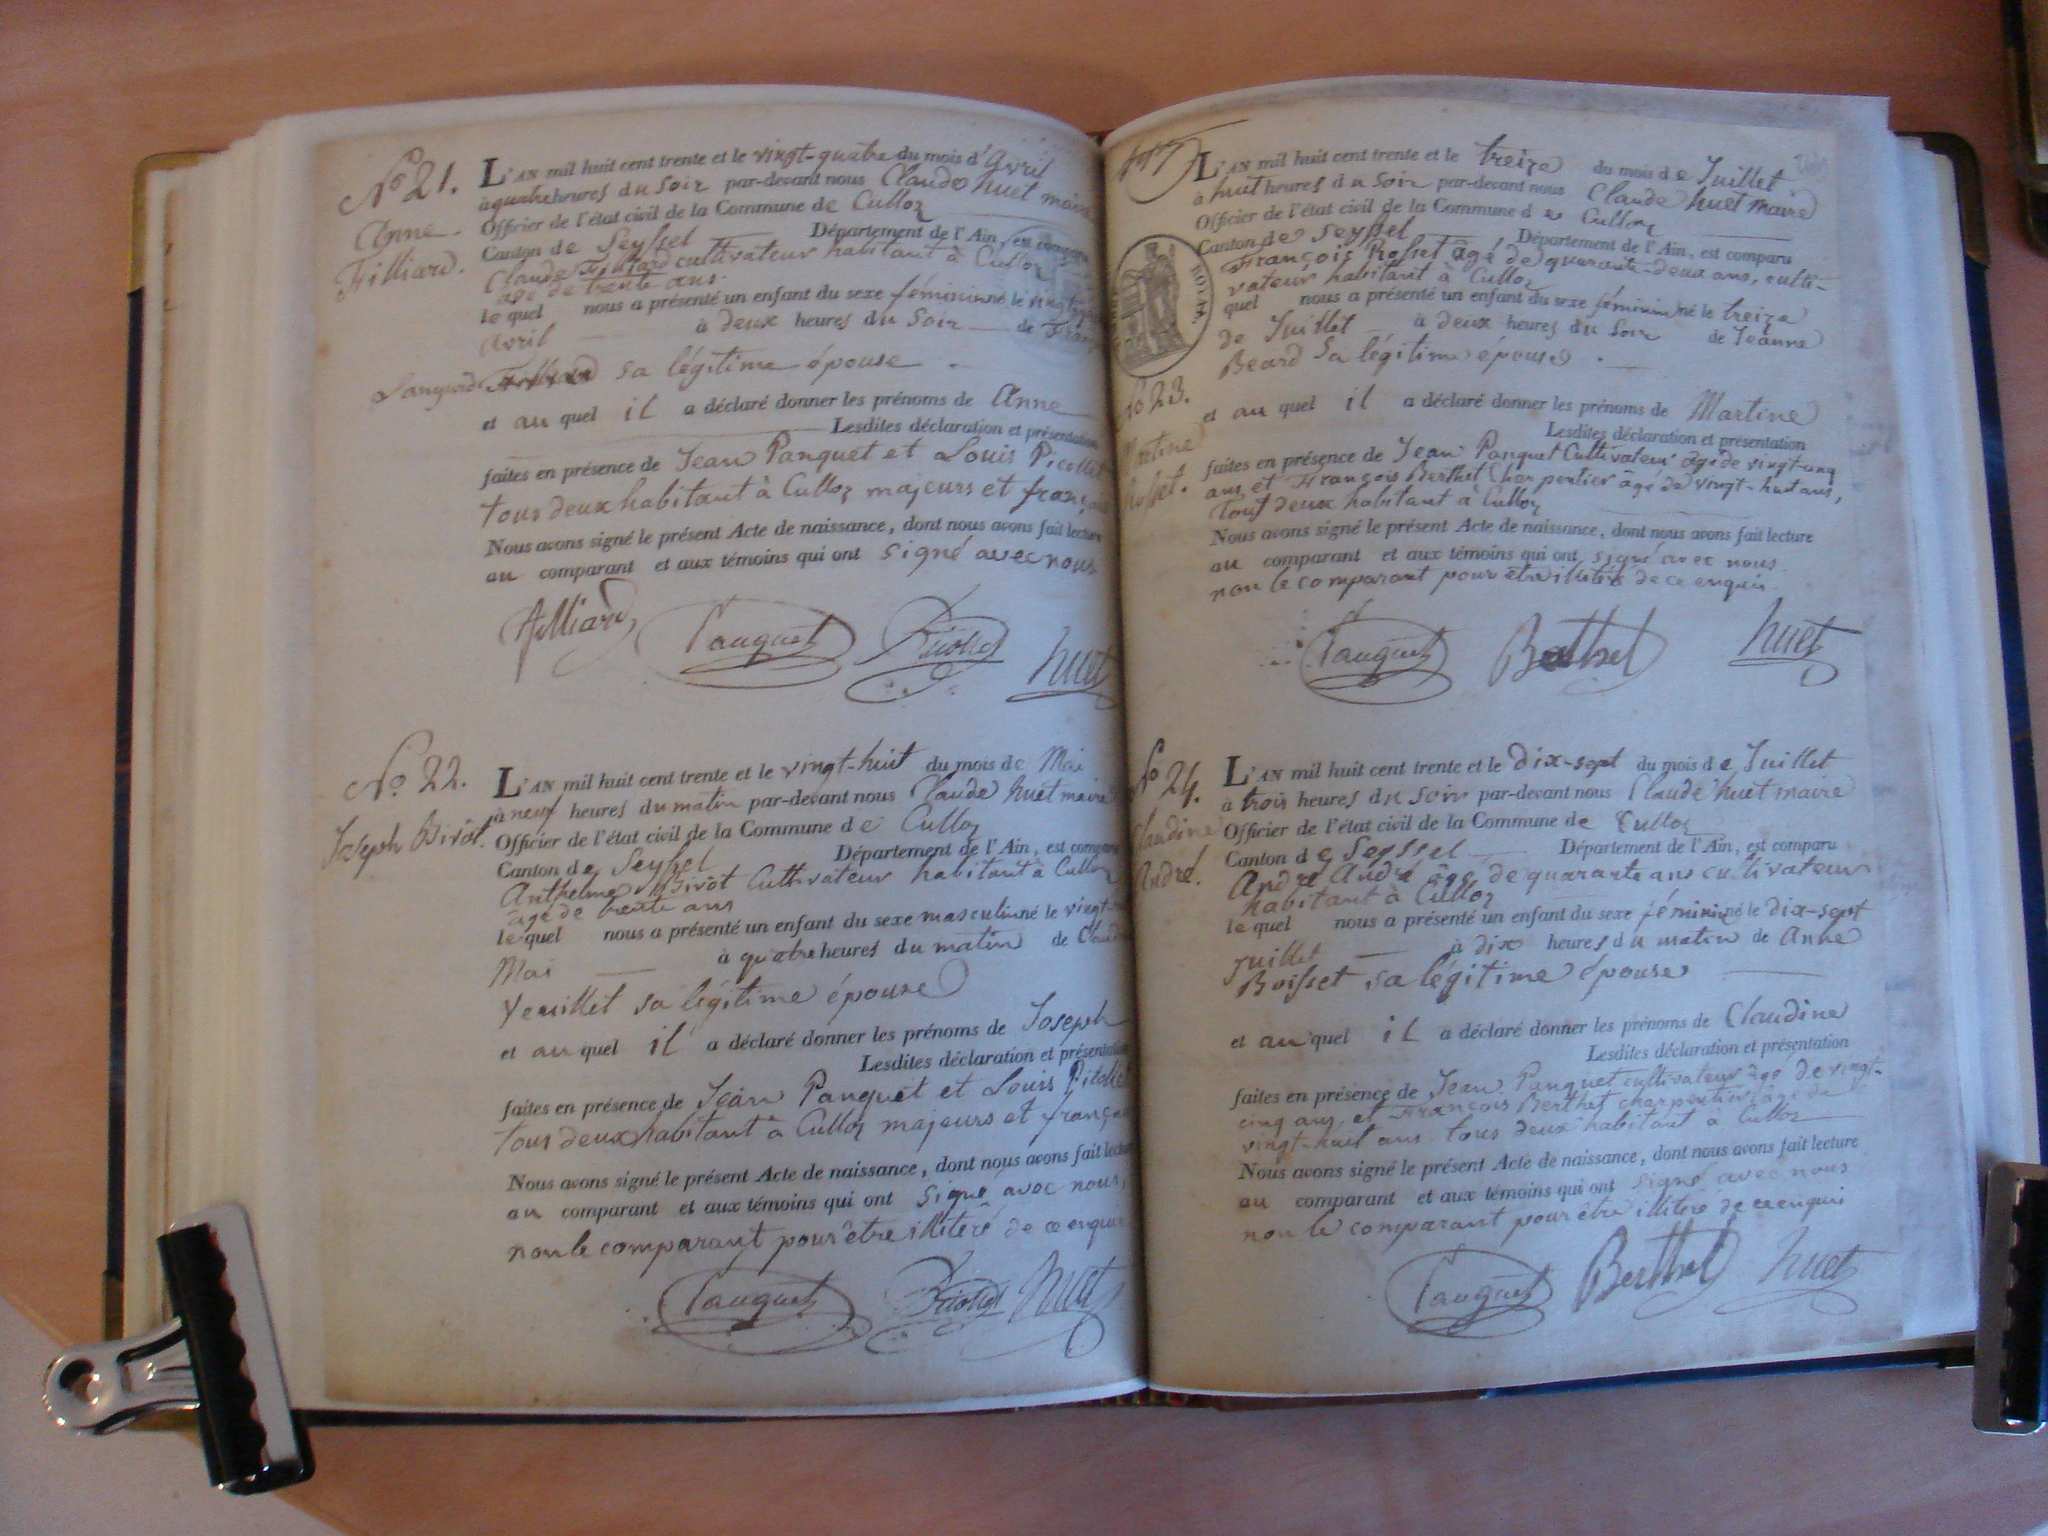 No 21.
Anne
Filliard.
L'AN mil huit cent trente et le vingt-quatre du mois d'Avril
à quatre heures du soir par-devant nous Claude huet maire
Officier de l'état civil de la Commune de Culloz
Canton de Seyssel Département de l'Ain, est comparu
Claude Filliard cultivateur habitant à Culloz
âgé de trente ans
le quel nous a présenté un enfant du sexe féminin né le vingt
Avril à deux heures du Soir de
sa légitime épouse.
et au quel il a déclaré donner les prénoms de Anne
Lesdites déclaration et présentation
faites en présence de Jean Panquet et Louis Picollet
tous deux habitant à Culloz majeurs et français
Nous avons signé le présent Acte de naissance, dont nous avons fait lecture
au comparant et aux témoins qui ont signé avec nous
Filliard Panquet Picollet huet
No 22.
Joseph Bivot.
L'AN mil huit cent trente et le vingt-huit du mois de Mai
à neuf heures du matin par-devant nous Claude huet maire
Officier de l'état civil de la Commune de Culloz
Canton de Seyssel Département de l'Ain, est comparu
Anthelme Bivot Cultivateur habitant à Culloz
âgé de trente ans
le quel nous a présenté un enfant du sexe masculin né le vingt
Mai à quatre heures du matin de
Veuillet sa légitime épouse
et au quel il a déclaré donner les prénoms de Joseph
Lesdites déclaration et présentation
faites en présence de Jean Panquet et Louis Picollet
tous deux habitant à Culloz majeurs et français
Nous avons signé le présent Acte de naissance, dont nous avons fait lecture
au comparant et aux témoins qui ont signé avec nous,
non le comparant pour être illitéré de ce enquis
Panquet Picollet huet
No 23.
Martine
Rosset.
L'AN mil huit cent trente et le treize du mois de Juillet
à huit heures du soir par-devant nous Claude huet maire
Officier de l'état civil de la Commune de Culloz
Canton de Seyssel Département de l'Ain, est comparu
François Rosset âgé de quarante-deux ans, culti-
vateur habitant à Culloz
quel nous a présenté un enfant du sexe féminin né le treize
de Juillet à deux heures du Soir de Jeanne
Beard sa légitime épouse.
et au quel il a déclaré donner les prénoms de Martine
Lesdites déclaration et présentation
faites en présence de Jean Panquet Cultivateur âgé de vingt-cinq
ans et François Berthet Charpentier âgé de vingt-huit ans,
tous deux habitant à Culloz
Nous avons signé le présent Acte de naissance, dont nous avons fait lecture
au comparant et aux témoins qui ont signé avec nous
non le comparant pour être illitéré de ce enquis.
Panquet Berthet huet
No 24.
Claudine
André.
L'AN mil huit cent trente et le dix-sept du mois de Juillet
à trois heures du soir par-devant nous Claude huet maire
Officier de l'état civil de la Commune de Culloz
Canton de Seyssel Département de l'Ain, est comparu
André André âgé de quarante ans cultivateur
habitant à Culloz
le quel nous a présenté un enfant du sexe féminin né le dix-sept
Juillet à dix heures du matin de Anne
Boisset sa légitime épouse
et au quel il a déclaré donner les prénoms de Claudine
Lesdites déclaration et présentation
faites en présence de Jean Panquet cultivateur âgé de vingt-
cinq ans, et François Berthet charpentier âgé de
vingt-huit ans tous deux habitant à Culloz
Nous avons signé le présent Acte de naissance, dont nous avons fait lecture
au comparant et aux témoins qui ont signé avec nous
non le comparant pour être illitéré de ce enquis
Panquet Berthet huet